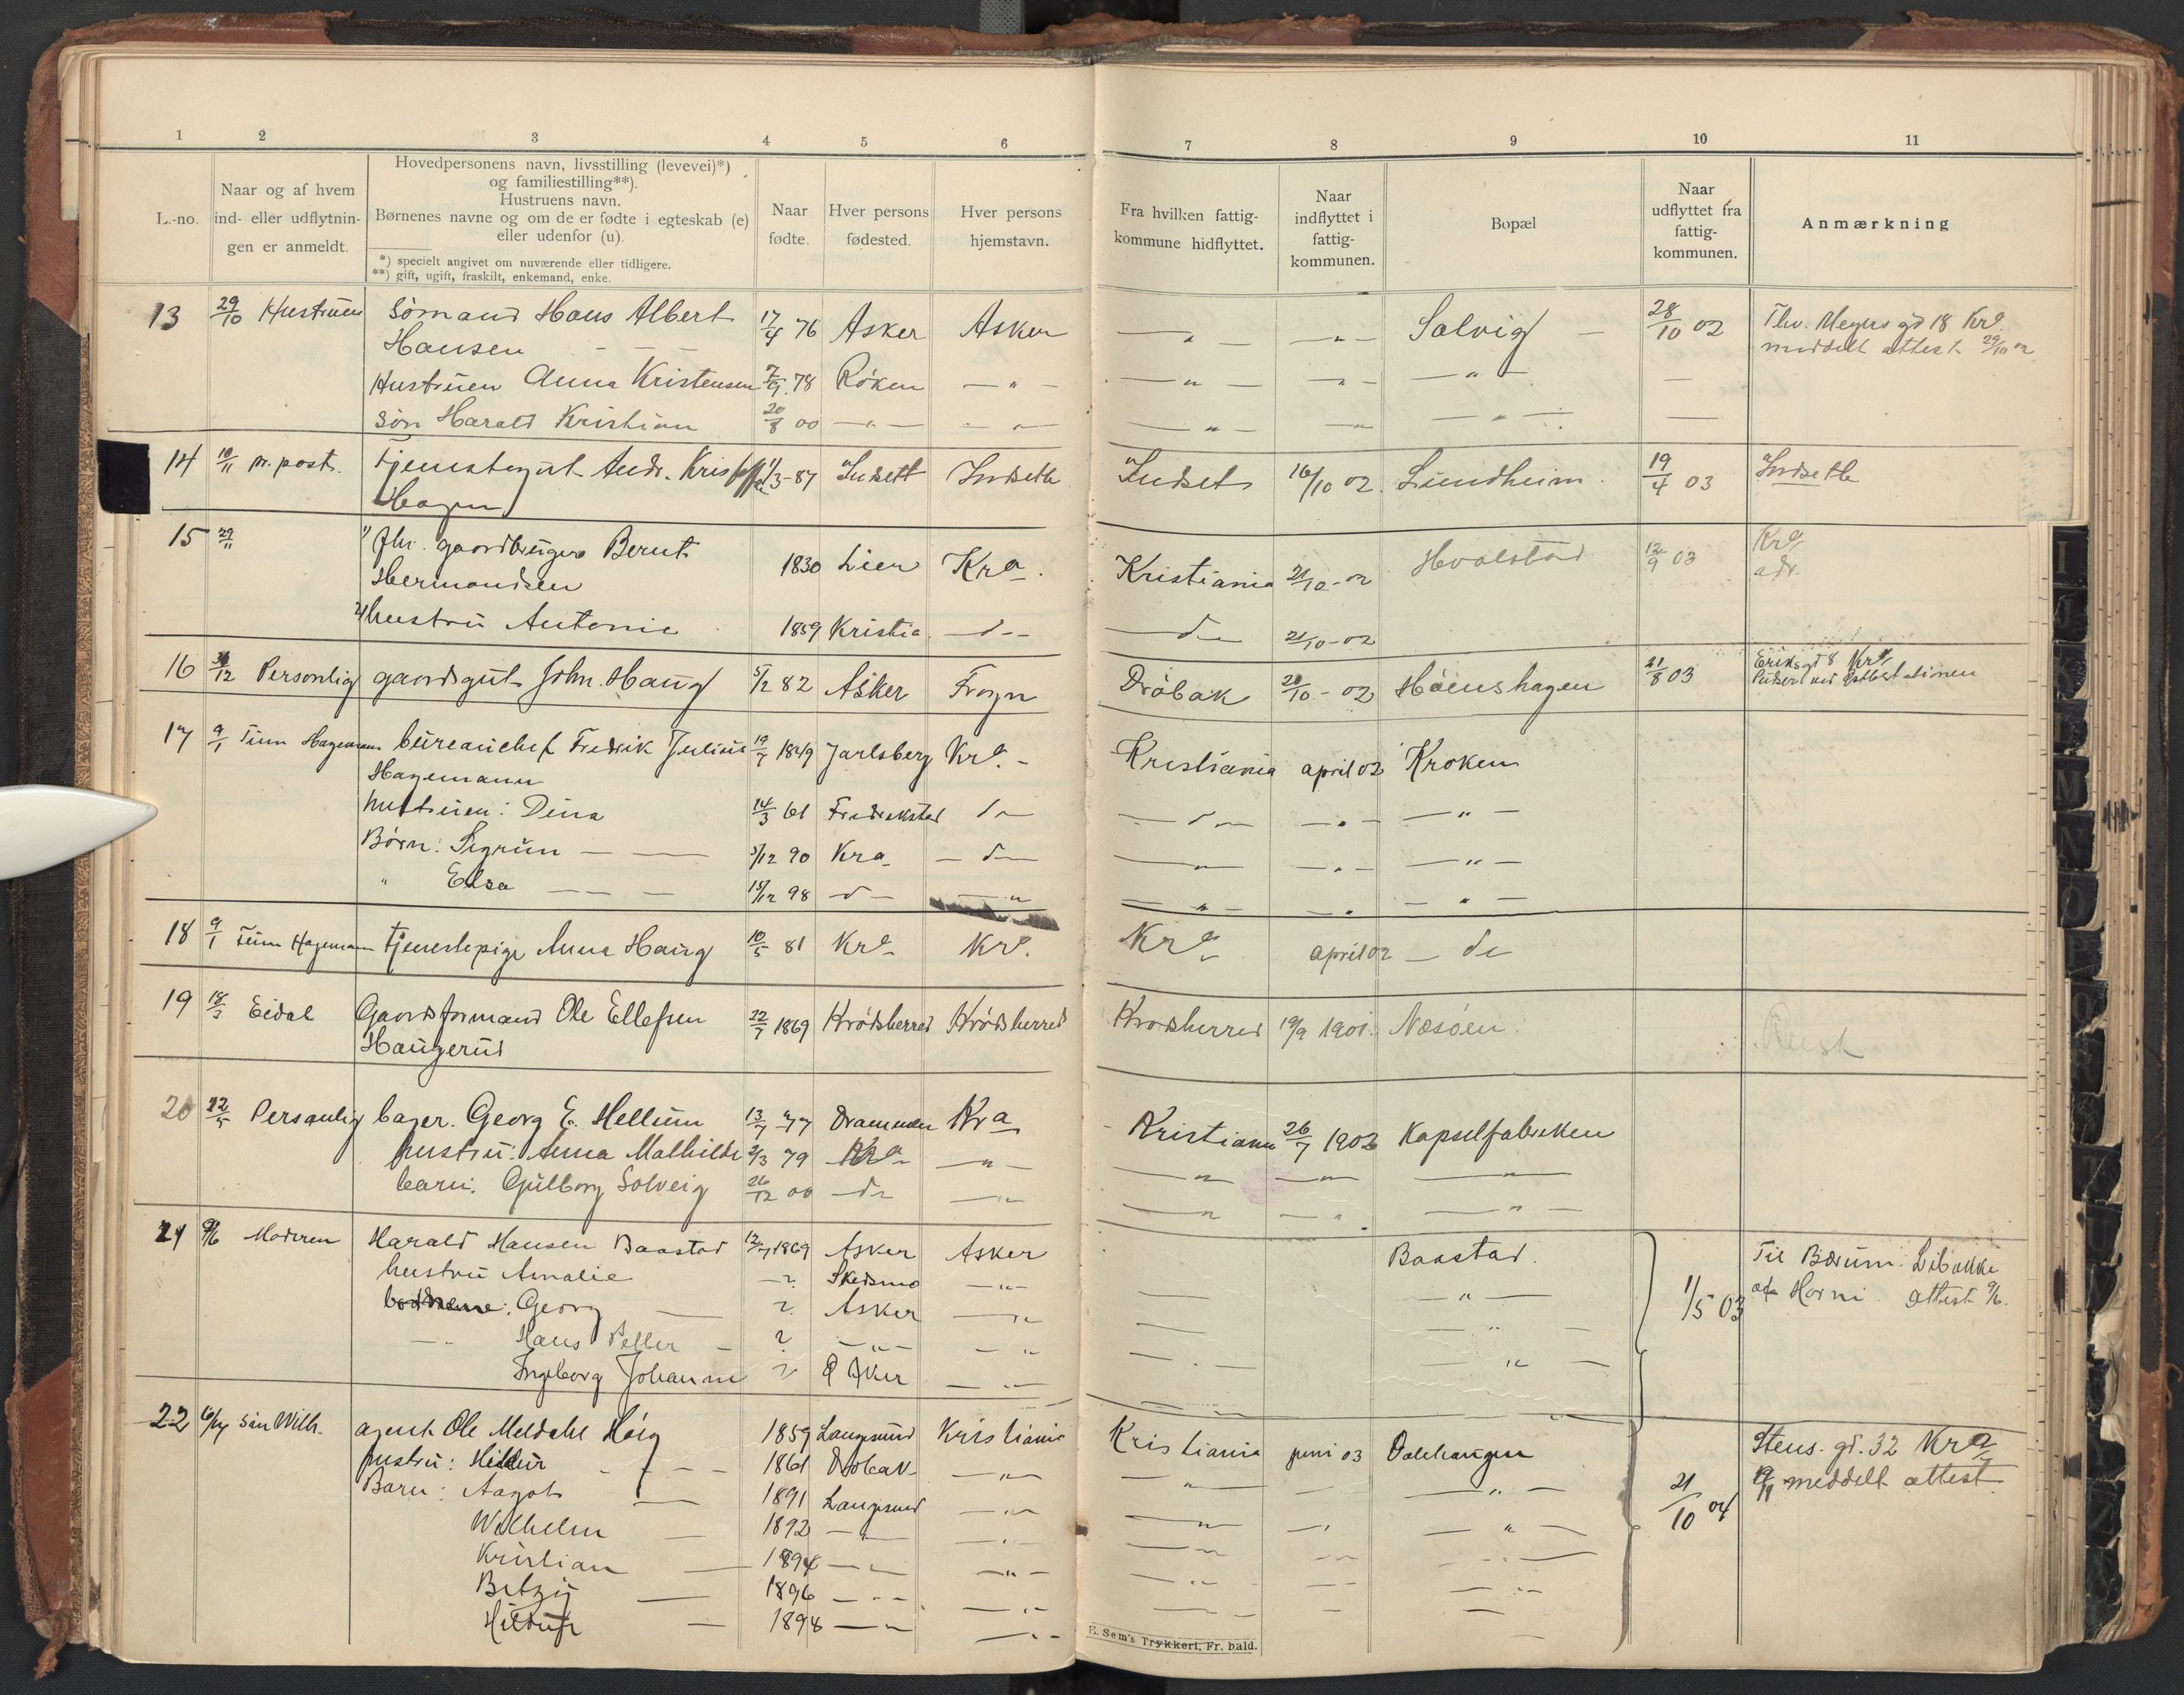 1 2 3 4 5 6 7 8 9 10 11
L.-no.
Naar og af hvem
ind- eller udflytnin-
gen er anmeldt.
Hovedpersonens navn, livsstilling (levevei)*)
og familiestilling**).
Hustruens navn.
Børnenes navne og om de er fødte i egteskab (e)
eller udenfor (u).
*) specielt angivet om nuværende eller tidligere.
**) gift, ugift, fraskilt, enkemand, enke.
Naar
fødte.
Hver persons
fødested.
Hver persons
hjemstavn.
Fra hvilken fattig-
kommune hidflyttet.
Naar
indflyttet i
fattig-
kommunen.
Bopæl
Naar
udflyttet fra
fattig-
kommunen.
Anmærkning
13 29/10 Hustruen Sømand Hans Albert 17/4 76 Asker Asker — " — — " — Solvig — 28/10 02 Thv. Meyers gd 18 Kra.
Hansen — — — meddelt attest 29/10 02
Hustruen Anna Kristensen 7/9 78 Røken — " — — " — — " — — " — —
Søn Harald Kristian 20/8 00 — " — — " — — " — — " — — " — —
14 10/11 pr. post. Tjenestegut Andr. Kristoffer 1/3-87 Indsett Indseth Indset 16/10 02. Lundheim. 19/4 03 Indseth
Hagen
15 29/11 1) Fhv. gaardbruger Bernt 1830 Lier Kra. Kristiania 21/10-02 Hvalstad 12/9 03 Kra.
Hermandsen adr.
2) hustru Antonie 1859 Kristia. — d — — d — 21/10-02
16 31/12 Personlig gaardsgut John Haug 5/2 82 Asker Frogn Drøbak 20/10-02 Høenshagen 21/8 03 Eriksgd 8 Kra.
Pudser ved Østbstationen
17 9/1 Finn Hagemann bureauchef Fredrik Julius 19/7 1849 Jarlsberg Kra. — Kristiania april 02 Kroken
Hagemann
hustruen: Dina 14/3 61 Fredrikstad do — do — — " — — " —
Børn: Sigrun — — 5/12 90 Kra. — do — " — — " — — " —
" Elsa — — — 15/12 98 — d — — " — " — — " — — " —
18 9/1 Finn Hagemann tjenestepige Anna Haug 10/5 81 Kra. Kra. Kra. april 02 — do
19 18/3 Eidal Gaardsformand Ole Ellefsen 22/7 1869 Krødsherred Krødsherred Krødsherred 19/9 1901. Nesøen.
Haugerud
20 22/5 Personlig bager. Georg E. Hellum 13/7 77 Drammen Kra Kristiania 26/7 1902 Kapselfabriken
hustru: Anna Mathilde 2/3 79 Kra. — " — — " — — " — — " —
barn: Gulborg Solveig 26/12 00 — do — " — — " — — " — — " —
21 9/6 Moderen Harald Hansen Baastad 12/7 1869 Asker Asker Baastad. 1/5 03 Til Bærum. Libakke
hustru Amalie — ?. Skedsmo — " — — — " — Horni. attest 9/6.
Georg — ?. Asker — " — — — " —
— " — Hans Petter — ? — " — — " — — — " —
Ingeborg Johanne ? Aker — " — —
22 6/7 Søn Wilh. agent Ole Meldahl Høeg 1859 Langesund Kristiania Kristiania juni 03 Dalehaugen 21/10 04 Stens. gd. 32 Kra.
hustru: Hildur — — — 1861 Drøbak — " — — " — — — " — meddelt attest
Barn: Aagot — 1891 Langesund — " — — " — — " — — " —
Wilhelm — 1892 — " — — " — — " — — " —
Kristian — 1894 — " — — " — — " — — " —
Betzy — 1896 — " — — " — — " — —
Hildur — 1898 — " — — " — — —
E. Sem's Trykkeri, Fr. hald.
I
J
K
L
M
N
O
P
Q
R
S